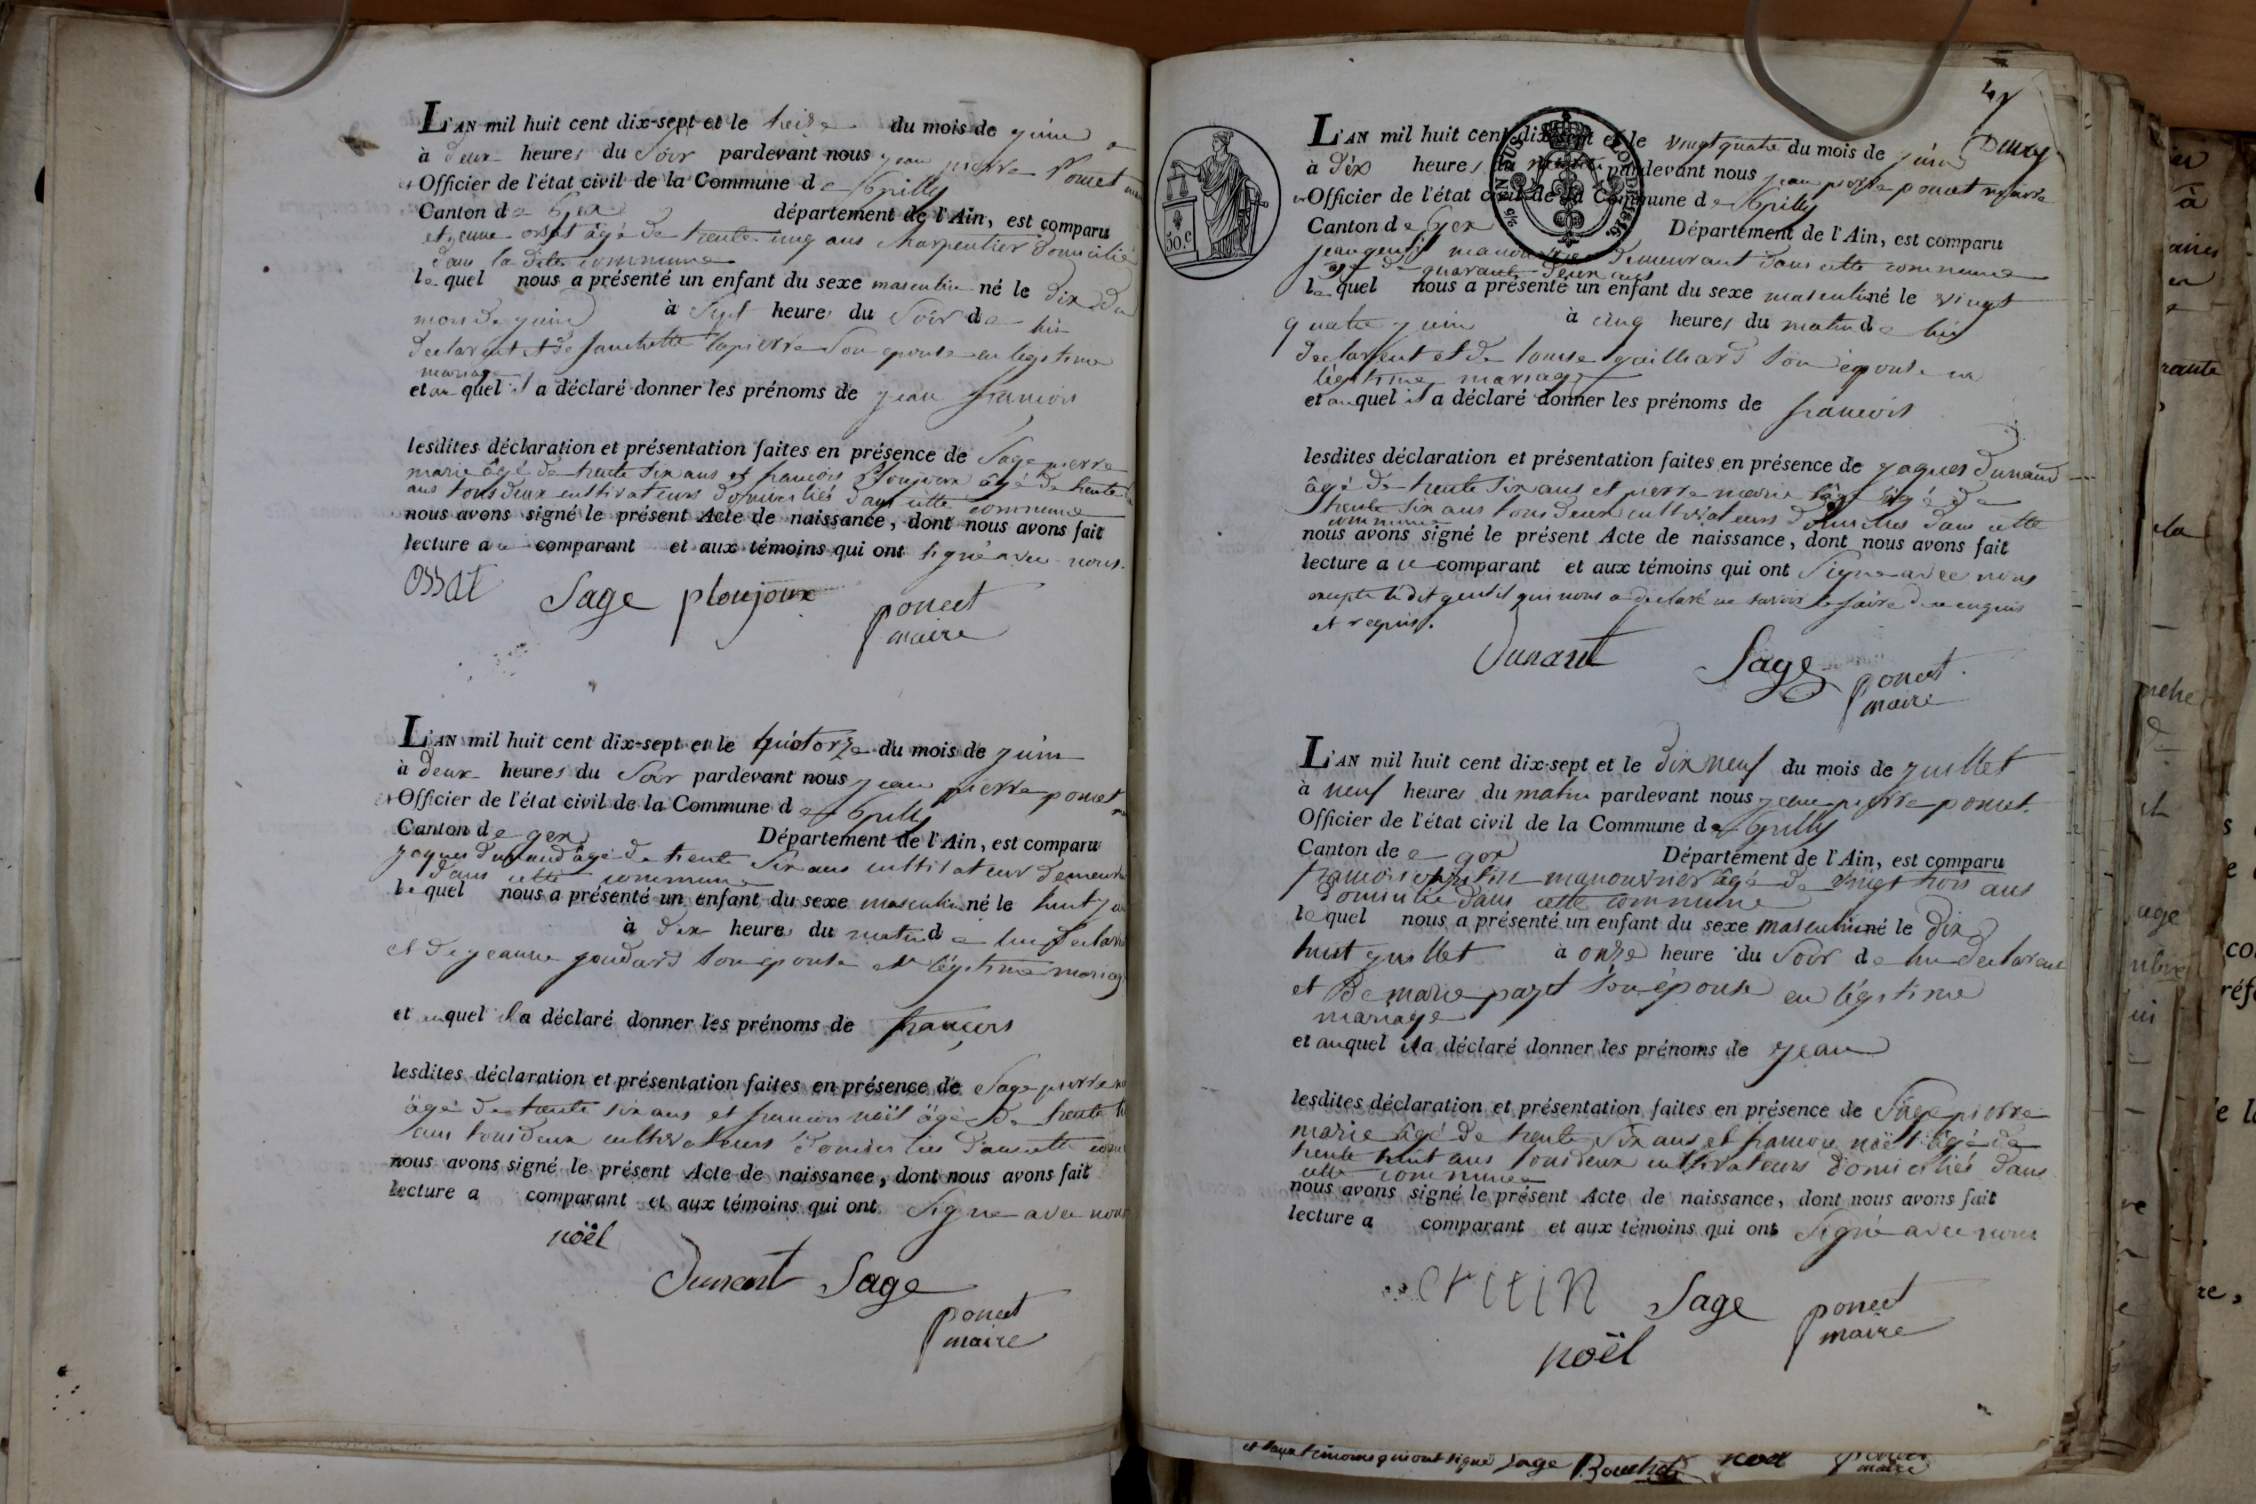 L'AN mil huit cent dix-sept et le treize du mois de juin
à deux heures du Soir pardevant nous jean pierre Poncet
Officier de l'état civil de la Commune de Grilly
Canton de Gex département de l'Ain, est comparu
etienne ossat âgé de trente cinq ans charpentier domicilié
dans la dite commune
lequel nous a présenté un enfant du sexe masculin né le dix du
mois de juin à Sept heures du Soir de lui
declarent et de lapierre Son epouse en legitime
mariage
et auquel il a déclaré donner les prénoms de jean francois
lesdites déclaration et présentation faites en présence de Sage pierre
marie âgé de trente Six ans et francois Ploujoux âgé de trente
ans tous deux cultivateurs domiciliés dans cette commune
nous avons signé le présent Acte de naissance, dont nous avons fait
lecture au comparant et aux témoins qui ont Signé avec nous.
Ossat Sage ploujoux poncet
maire
L'AN mil huit cent dix-sept et le quatorze du mois de juin
à deux heures du Soir pardevant nous jean pierre poncet
Officier de l'état civil de la Commune de Grilly
Canton de gex Département de l'Ain, est comparu
jaques dunand âgé de trente Six ans cultivateur demeurant
dans cette commune
lequel nous a présenté un enfant du sexe masculin né le huit
à dix heures du matin de lui
et de jeanne goudard Son epouse en légitime mariage
et auquel il a déclaré donner les prénoms de francois
lesdites déclaration et présentation faites en présence de Sage pierre
âgé de trente six ans et francois noël âgé de trente
ans tous deux cultivateurs domiciliés dans cette
nous avons signé le présent Acte de naissance, dont nous avons fait
lecture a comparant et aux témoins qui ont Signé avec nous
noël
Dunant Sage
poncet
maire
50.c
L'AN mil huit cent dix-sept et le vingt quatre du mois de juin
à dix heures du matin pardevant nous jean pierre poncet maire
Officier de l'état civil de la Commune de Grilly
Canton de Gex Département de l'Ain, est comparu
jean gentil manouvrier demeurant dans cette commune
âgé de quarante deux ans
lequel nous a présenté un enfant du sexe masculin né le vingt
quatre juin à cinq heures du matin de lui
declarent et de louise gailliard Son épouse en
légitime mariage
et auquel il a déclaré donner les prénoms de francois
lesdites déclaration et présentation faites en présence de jaques Dunand
âgé de trente Six ans et pierre marie Sage âgé de
trente Six ans tous deux cultivateurs domiciliés dans cette
commune
nous avons signé le présent Acte de naissance, dont nous avons fait
lecture a ce comparant et aux témoins qui ont Signé avec nous
excepté le dit gentil qui nous a déclaré ne savoir le faire de ce enquis
et requis.
Dunant Sage poncet
maire
L'AN mil huit cent dix-sept et le dix neuf du mois de juillet
à neuf heures du matin pardevant nous jean pierre poncet
Officier de l'état civil de la Commune de Grilly
Canton de gex Département de l'Ain, est comparu
francois manouvrier âgé de vingt trois ans
domicilié dans cette commune
lequel nous a présenté un enfant du sexe masculin né le dix
huit juillet à onze heure du Soir de lui declarent
et de marie Son épouse en légitime
mariage
et auquel il a déclaré donner les prénoms de jean
lesdites déclaration et présentation faites en présence de Sage pierre
marie âgé de trente Six ans et francois noël âgé de
trente huit ans tous deux cultivateurs domiciliés dans
cette commune
nous avons signé le présent Acte de naissance, dont nous avons fait
lecture a comparant et aux témoins qui ont Signé avec nous
Sage poncet
maire
noël
et aux témoins qui ont signé Sage Bouchet noël poncet
maire